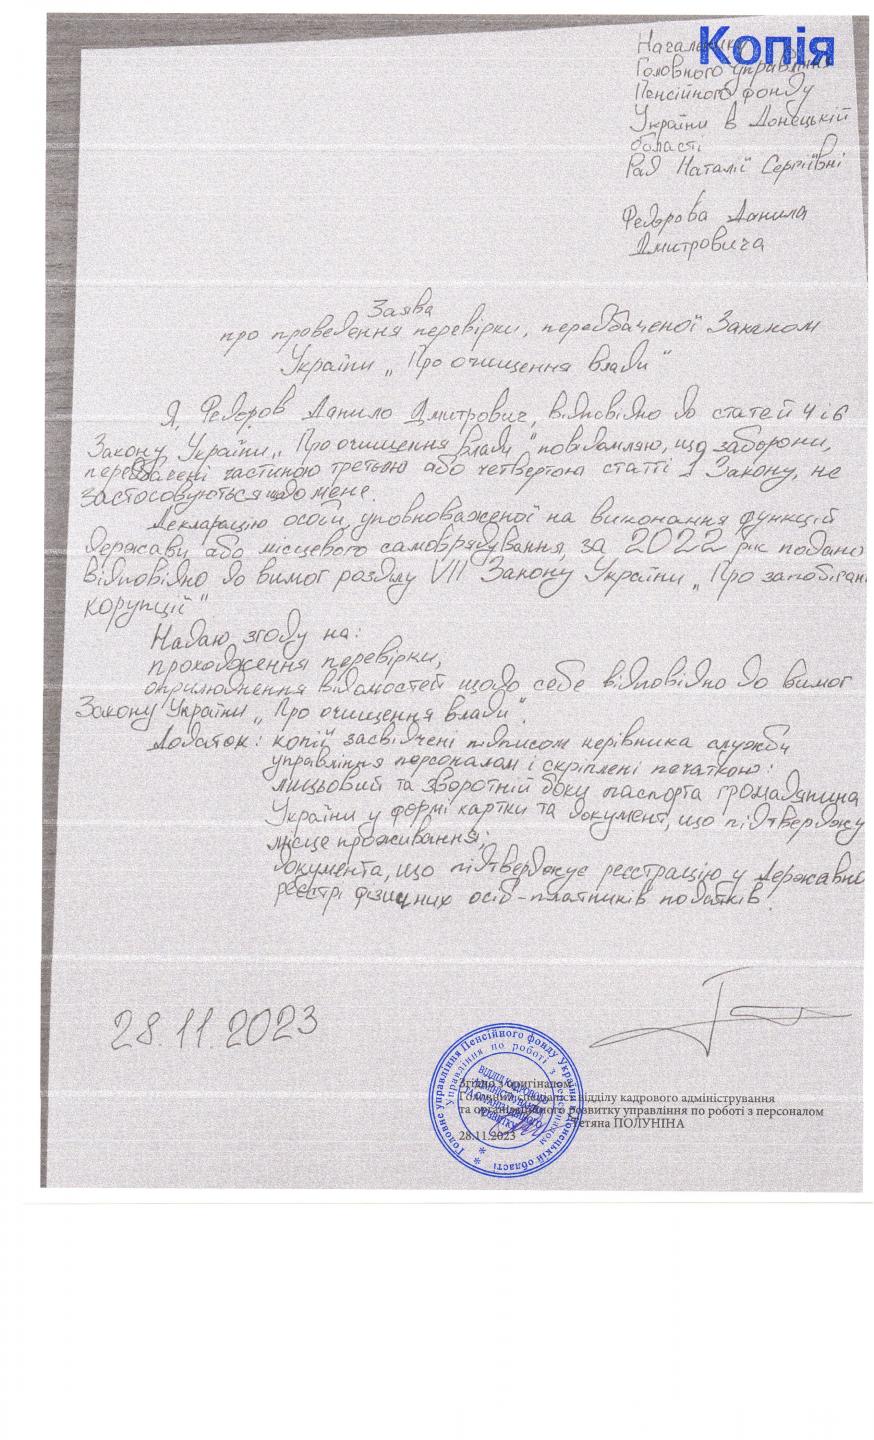 Копія
Начальнику
Головного управління
Пенсійного фонду
України в Донецькій
області
Рад Наталії Сергіївні
Федорова Данила
Дмитровича
Заява
про проведення перевірки, передбаченої Законом
України „Про очищення влади"
Я, Федоров Данило Дмитрович, відповідно до статей 4 і 6
Закону України „Про очищення влади" повідомляю, що заборони,
передбачені частиною третьою або четвертою статті 1 Закону, не
застосовуються щодо мене.
Декларацію особи, уповноваженої на виконання функцій
держави або місцевого самоврядування, за 2022 рік подано
відповідно до вимог розділу VII Закону України „Про запобіган
корупції"
Надаю згоду на:
проходження перевірки,
оприлюднення відомостей щодо себе відповідно до вимог
Закону України „Про очищення влади".
Додаток: копії засвідчені підписом керівника служби
управління персоналом і скріплені печаткою:
лицьовий та зворотній боку паспорта громадянина
України у формі картки та документ, що підтверджу
місце проживання;
документа, що підтверджує реєстрацію у Державно
реєстрі фізичних осіб-платників податків.
28.11.2023
Головне управління Пенсійного фонду України в Донецькій області
Управління по роботі з персоналом
ВІДДІЛ КАДРОВОГО
АДМІНІСТРУВАННЯ
ТА ОРГАНІЗАЦІЙНОГО
РОЗВИТКУ
Згідно з оригіналом
Головний спеціаліст відділу кадрового адміністрування
та організаційного розвитку управління по роботі з персоналом
Тетяна ПОЛУНІНА
28.11.2023